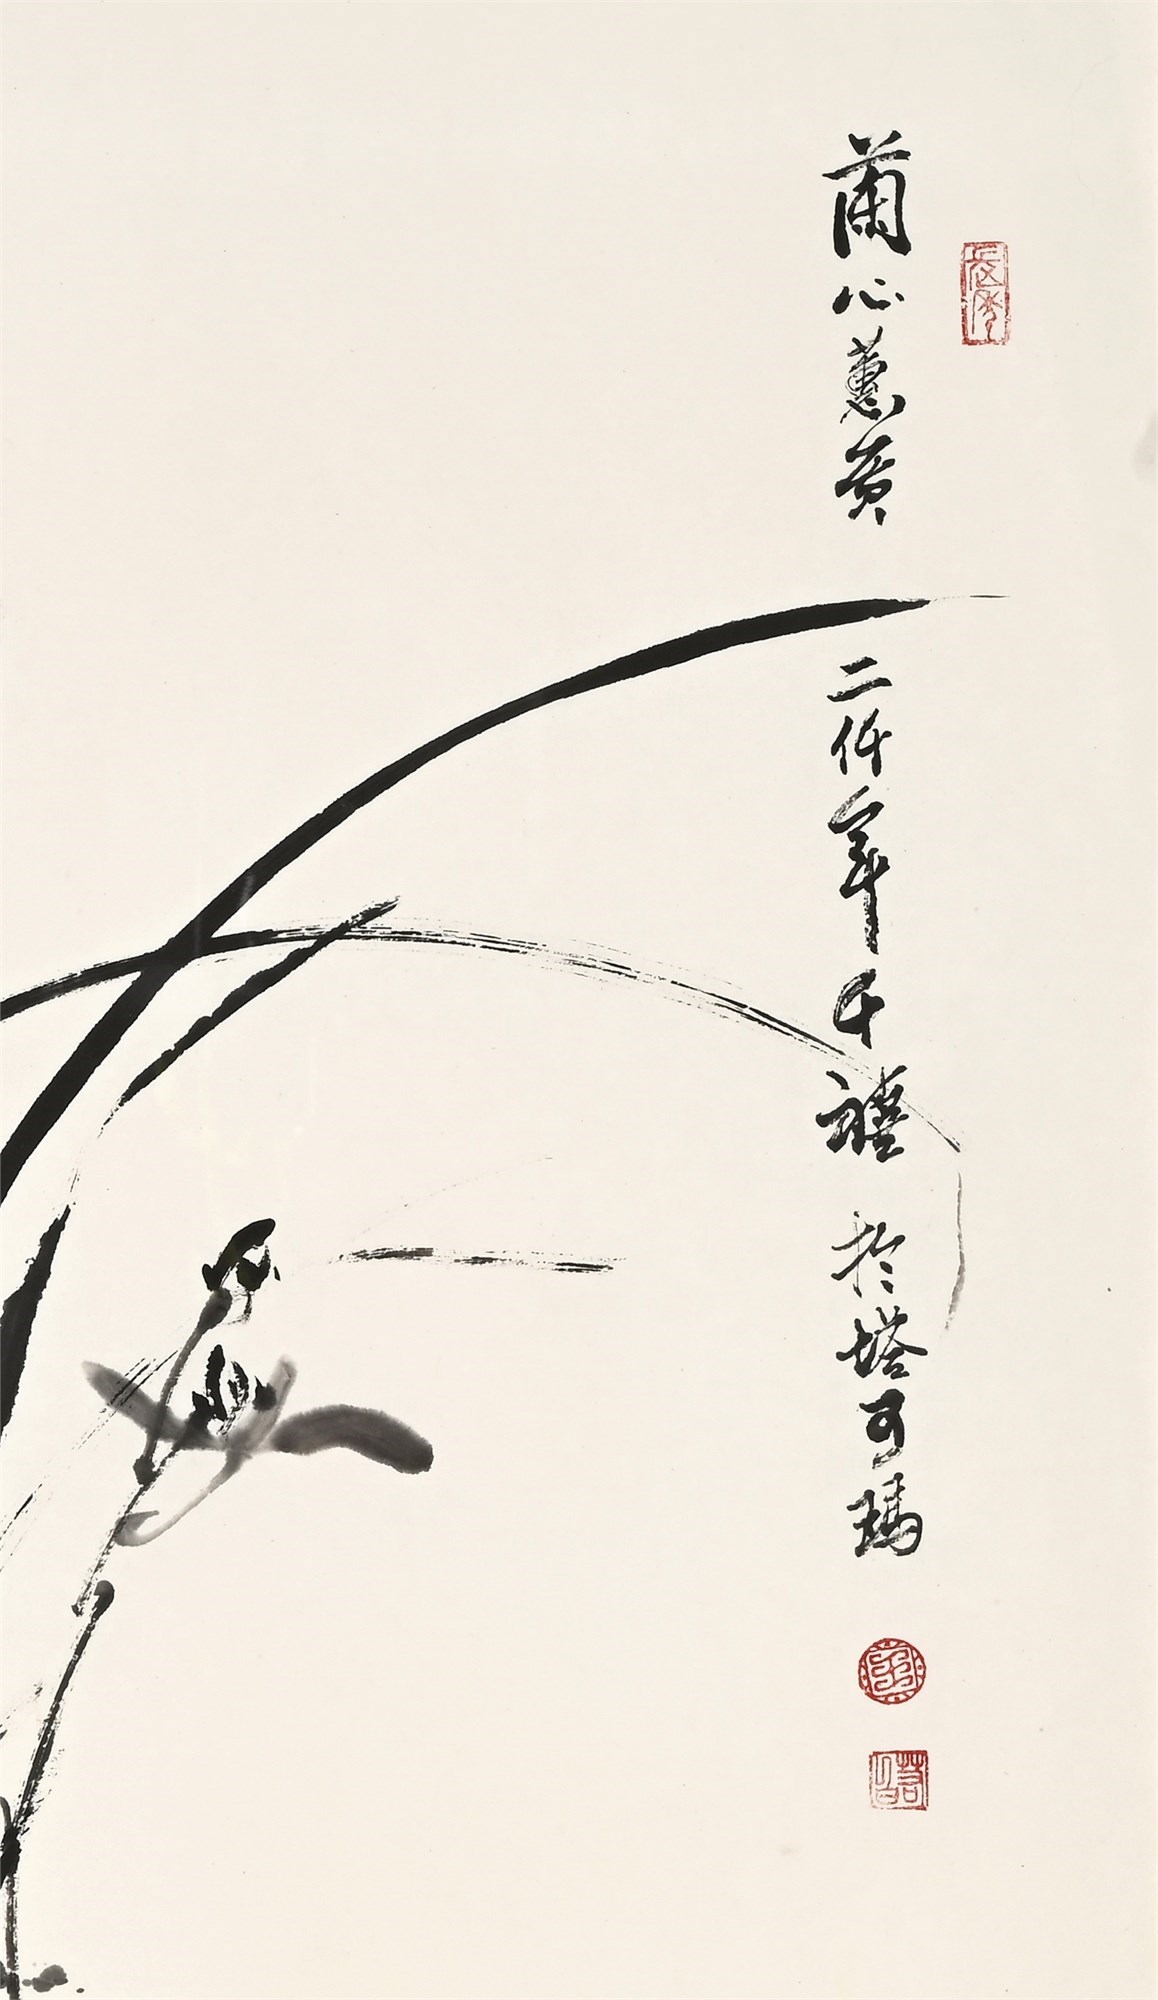 蘭心蕙質 二仟年千禧 於塔可瑪